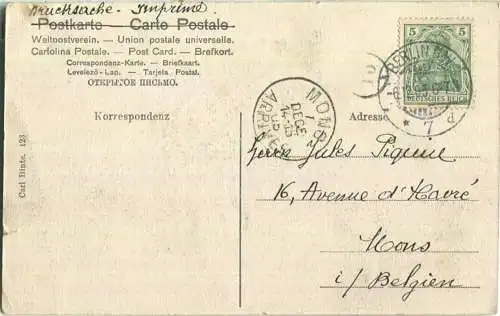 Drucksache - Imprimé
Postkarte — Carte Postale
Weltpostverein. — Union postale universelle.
Cartolina Postale. — Post Card. — Brefkort.
Correspondenz-Karte. — Briefkaart.
Levelező-Lap. — Tarjeta Postal.
ОТКРЫТОЕ ПИСЬМО.
Korrespondenz
Adresse
5 5
DEUTSCHES REICH
BERLIN
7 d
MONS
1
DECE
14-15
ARRIVÉE
Carl Binte. 123
Herrn Jules Piqueue
16, Avenue d'Havré
Mons
i/ Belgien